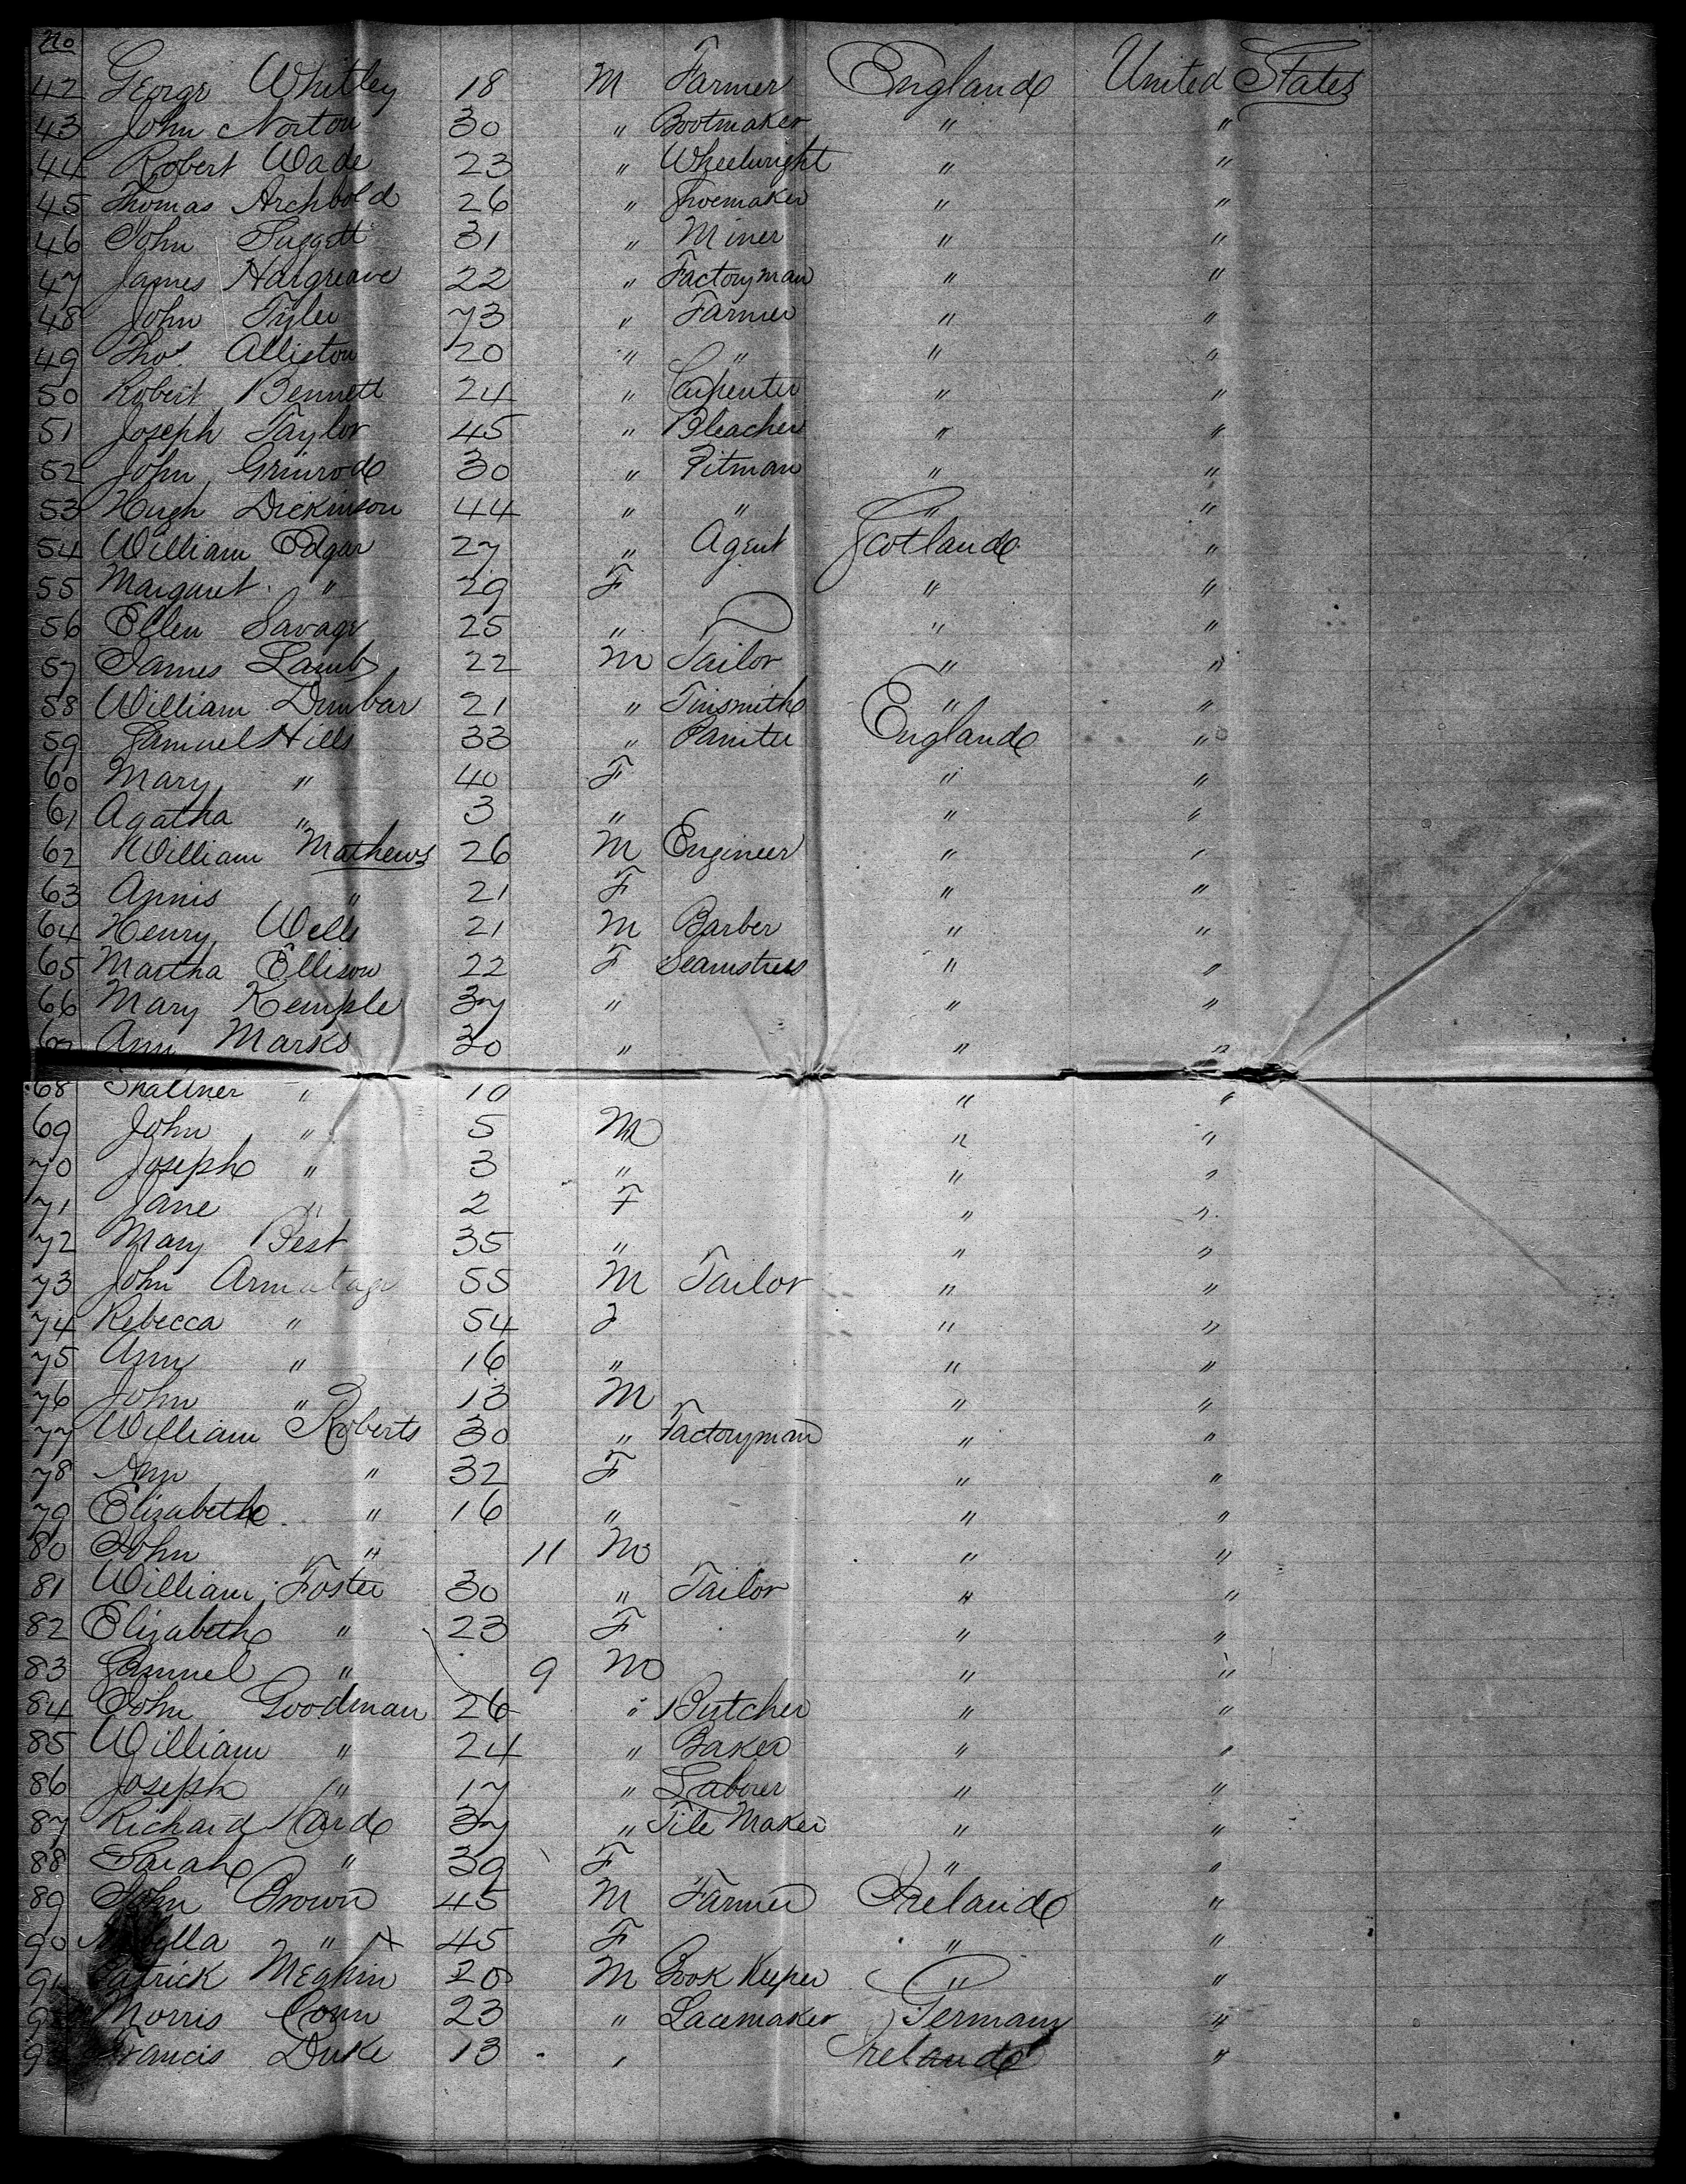 No
42 George Whitley 18 M Farmer England United States
43 John Norton 30 " Bootmaker " "
44 Robert Wade 23 " Wheelwright " "
45 Thomas Archbold 26 " Shoemaker " "
46 John Suggett 31 " Miner " "
47 James Hargreave 22 " Factoryman " "
48 John Tyler 73 " Farmer " "
49 Thos. Alliston 20 " " " "
50 Robert Bennett 24 " Carpenter " "
51 Joseph Taylor 45 " Bleacher " "
52 John Grinrod 30 " Pitman " "
53 Hugh Dickinson 44 " " " "
54 William Edgar 27 " Agent Scotland "
55 Margaret " 29 F " "
56 Ellen Savage 25 " " "
57 James Lamb 22 M Tailor " "
58 William Dunbar 21 " Tinsmith " "
59 Samuel Hills 33 " Painter England "
60 Mary " 40 F " "
61 Agatha " 3 " " "
62 William Mathews 26 M Engineer " "
63 Annis " 21 F " "
64 Henry Wells 21 M Barber " "
65 Martha Ellison 22 F Seamstress " "
66 Mary Kemple 37 " " "
67 Ann Marks 30 " " "
68 10 " "
69 John " 5 M " "
70 Joseph " 3 " " "
71 Jane " 2 F " "
72 Mary Best 35 " " "
73 John Armatage 55 M Tailor " "
74 Rebecca " 54 F " "
75 Ann " 16 " " "
76 John " 13 M " "
77 William Roberts 30 " Factoryman " "
78 Ann " 32 F " "
79 Elizabeth " 16 " " "
80 John " 11 M " "
81 William Foster 30 " Tailor " "
82 Elizabeth " 23 F " "
83 Samuel " 9 M " "
84 John Goodman 26 " Butcher " "
85 William " 24 " Baker " "
86 Joseph " 17 " Laborer " "
87 Richard Hard 37 " Tile Maker " "
88 Sarah " 39 F " "
89 John Brown 45 M Farmer Ireland "
90 " X 45 F " "
91 Patrick Meghin 20 M Book Keeper " "
Morris Conn 23 " Lacemaker Germany "
Francis Duke 13 " Ireland "